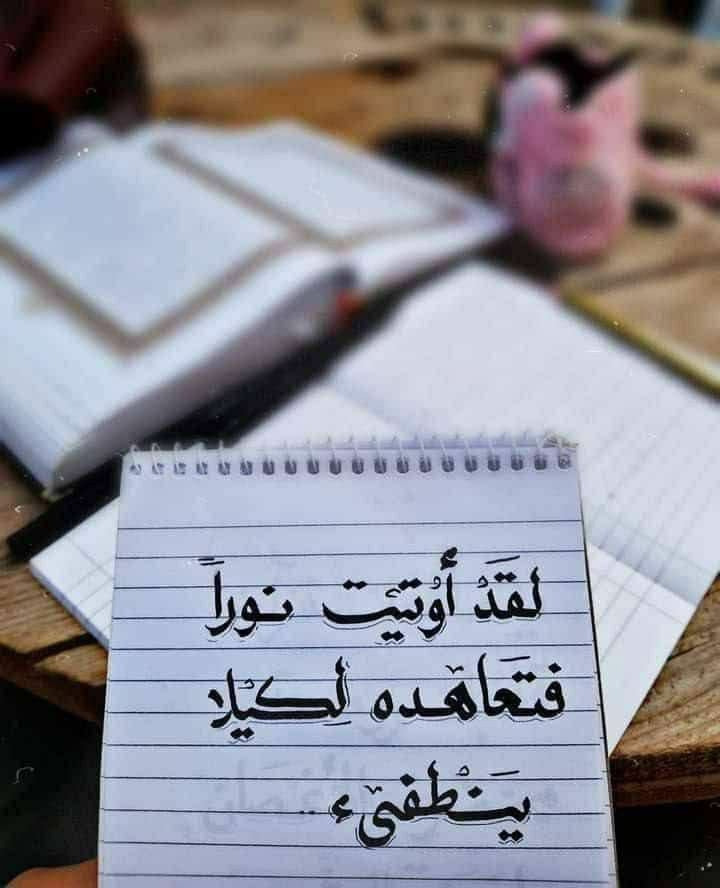 لقَدْ أُوتيْت نوراً
فتَعاهده لِكيْلا
يَنْطفىْء ..